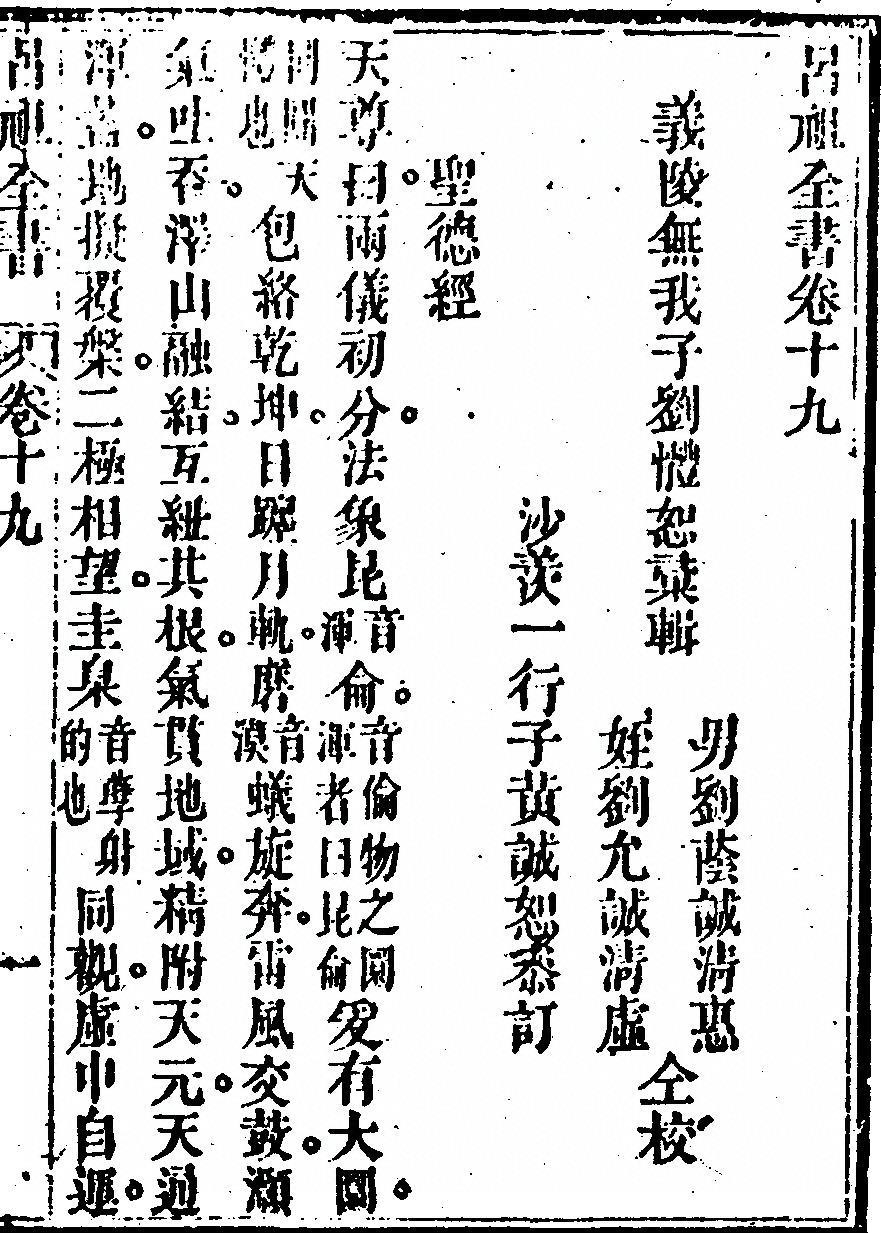 呂祖全書卷十九
義陵無我子劉體恕彙輯
男劉蔭誠清惠
姪劉允誠清虛
仝校
沙羨一行子黃誠恕叅訂
聖德經
天尊曰。兩儀初分。法象昆音渾侖。音倫物之圜渾者曰昆侖爰有大圜。
天包絡乾坤。日躔月軌。磨音漠蟻旋奔。雷風交鼓。灝
氣吐吞。澤山融結。互紐其根。氣貫地域。精附天元。天過
渾蓋。地擬覆槃。二極相望。圭臬音孽射的也同觀。虛中自運。
呂祖全書 卷十九 一